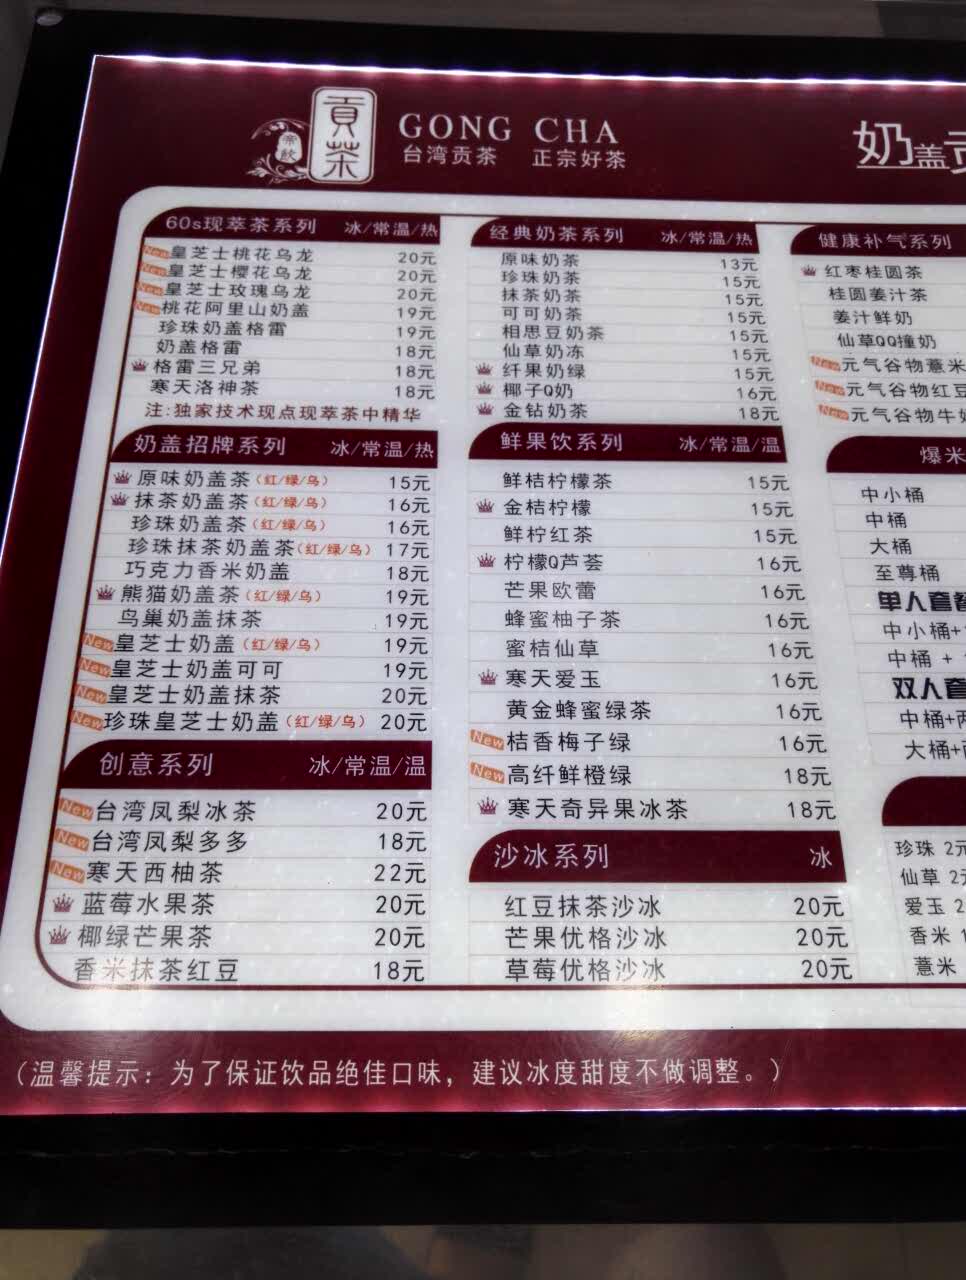 貢茶
帝飲
GONG CHA
台湾贡茶 正宗好茶
奶盖
60s现萃茶系列 冰/常温/热
New皇芝士桃花乌龙 20元
New皇芝士樱花乌龙 20元
New皇芝士玫瑰乌龙 20元
New桃花阿里山奶盖 19元
珍珠奶盖格雷 19元
奶盖格雷 18元
格雷三兄弟 18元
寒天洛神茶 18元
注:独家技术现点现萃茶中精华
奶盖招牌系列 冰/常温/热
原味奶盖茶(红/绿/乌) 15元
抹茶奶盖茶(红/绿/乌) 16元
珍珠奶盖茶(红/绿/乌) 16元
珍珠抹茶奶盖茶(红/绿/乌) 17元
巧克力香米奶盖 18元
熊猫奶盖茶(红/绿/乌) 19元
鸟巢奶盖抹茶 19元
New皇芝士奶盖(红/绿/乌) 19元
New皇芝士奶盖可可 19元
New皇芝士奶盖抹茶 20元
New珍珠皇芝士奶盖(红/绿/乌) 20元
创意系列 冰/常温/温
New台湾凤梨冰茶 20元
New台湾凤梨多多 18元
New寒天西柚茶 22元
蓝莓水果茶 20元
椰绿芒果茶 20元
香米抹茶红豆 18元
经典奶茶系列 冰/常温/热
原味奶茶 13元
珍珠奶茶 15元
抹茶奶茶 15元
可可奶茶 15元
相思豆奶茶 15元
仙草奶冻 15元
纤果奶绿 15元
椰子Q奶 16元
金钻奶茶 18元
鲜果饮系列 冰/常温/温
鲜桔柠檬茶 15元
金桔柠檬 15元
鲜柠红茶 15元
柠檬Q芦荟 16元
芒果欧蕾 16元
蜂蜜柚子茶 16元
蜜桔仙草 16元
寒天爱玉 16元
黄金蜂蜜绿茶 16元
New桔香梅子绿 16元
New高纤鲜橙绿 18元
寒天奇异果冰茶 18元
沙冰系列 冰
红豆抹茶沙冰 20元
芒果优格沙冰 20元
草莓优格沙冰 20元
健康补气系列
红枣桂圆茶
桂圆姜汁茶
姜汁鲜奶
仙草QQ撞奶
New元气谷物薏米
New元气谷物红豆
New元气谷物牛奶
爆米
中小桶
中桶
大桶
至尊桶
单人套餐
中小桶+
中桶 +
双人套
中桶+两
大桶+
珍珠 2元
仙草 2元
爱玉 2
香米 1
薏米
（温馨提示：为了保证饮品绝佳口味，建议冰度甜度不做调整。）